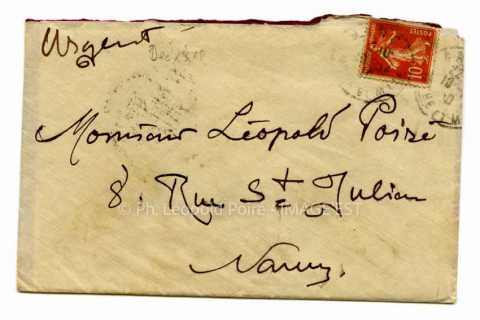 Urgent
POSTES
10
Monsieur Léopold Poiré
8, Rue St Julien
© Ph. Léopold Poiré - IMAGE'EST
Nancy.